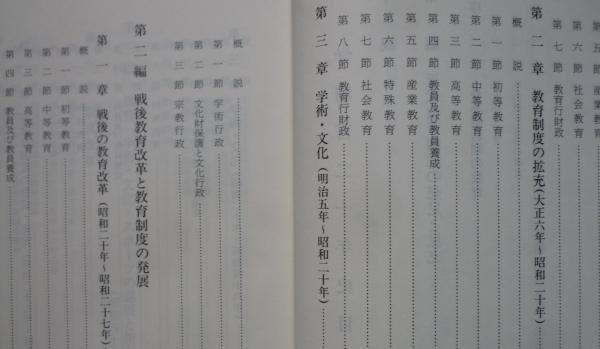 第五節 産業教育
第六節 社会教育
第七節 教育行財政
第二章 教育制度の拡充(大正六年~昭和二十年)
概説
第一節 初等教育
第二節 中等教育
第三節 高等教育
第四節 教員及び教員養成
第五節 産業教育
第六節 特殊教育
第七節 社会教育
第八節 教育行財政
第三章 学術・文化(明治五年~昭和二十年)
概説
第一節 学術行政
第二節 文化財保護と文化行政
第三節 宗教行政
第二編 戦後教育改革と教育制度の発展
第一章 戦後の教育改革(昭和二十年~昭和二十七年)
概説
第一節 初等教育
第二節 中等教育
第三節 高等教育
第四節 教員及び教員養成